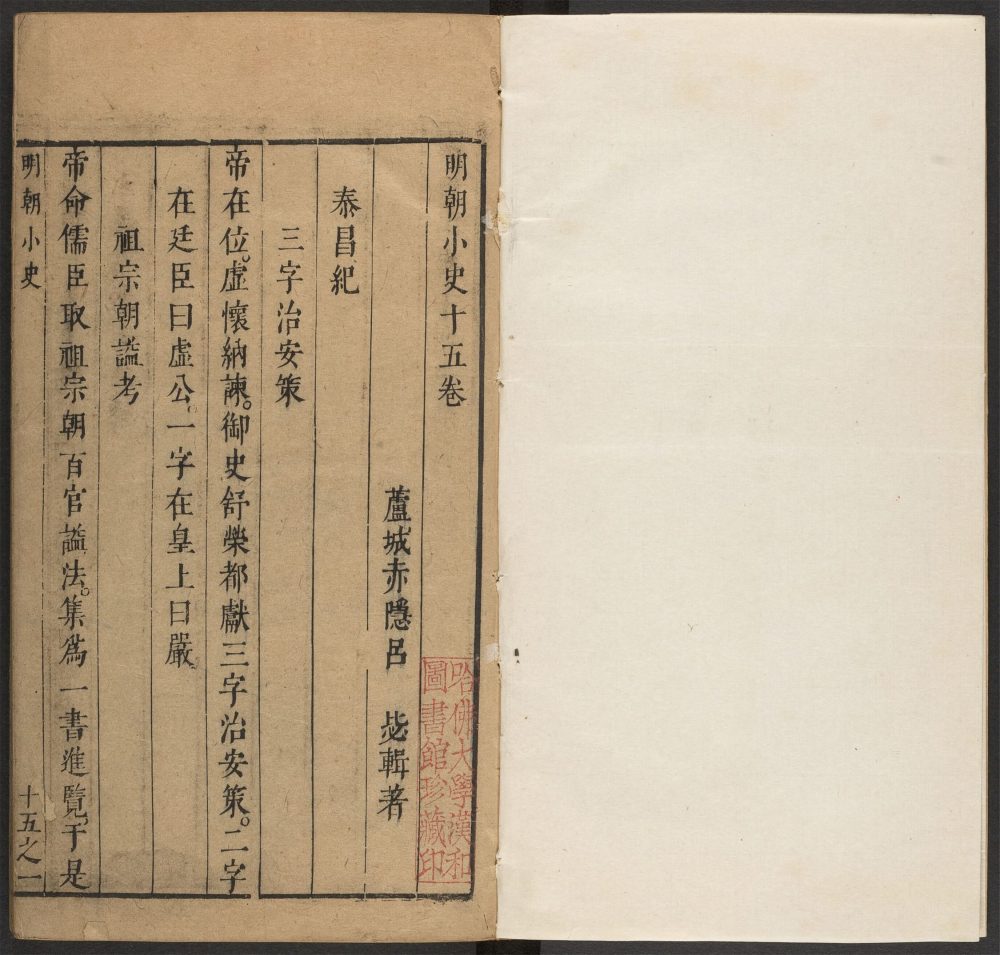 明朝小史十五卷
蘆城赤隱呂　毖輯著
泰昌紀
三字治安策
帝在位。虛懷納諫。御史舒榮都獻三字治安策。二字
在廷臣曰虛公。一字在皇上曰嚴。
祖宗朝謚考
帝命儒臣取祖宗朝百官謚法。集爲一書進覽。于是
明朝小史　十五之一
哈佛大學漢和
圖書館珍藏印